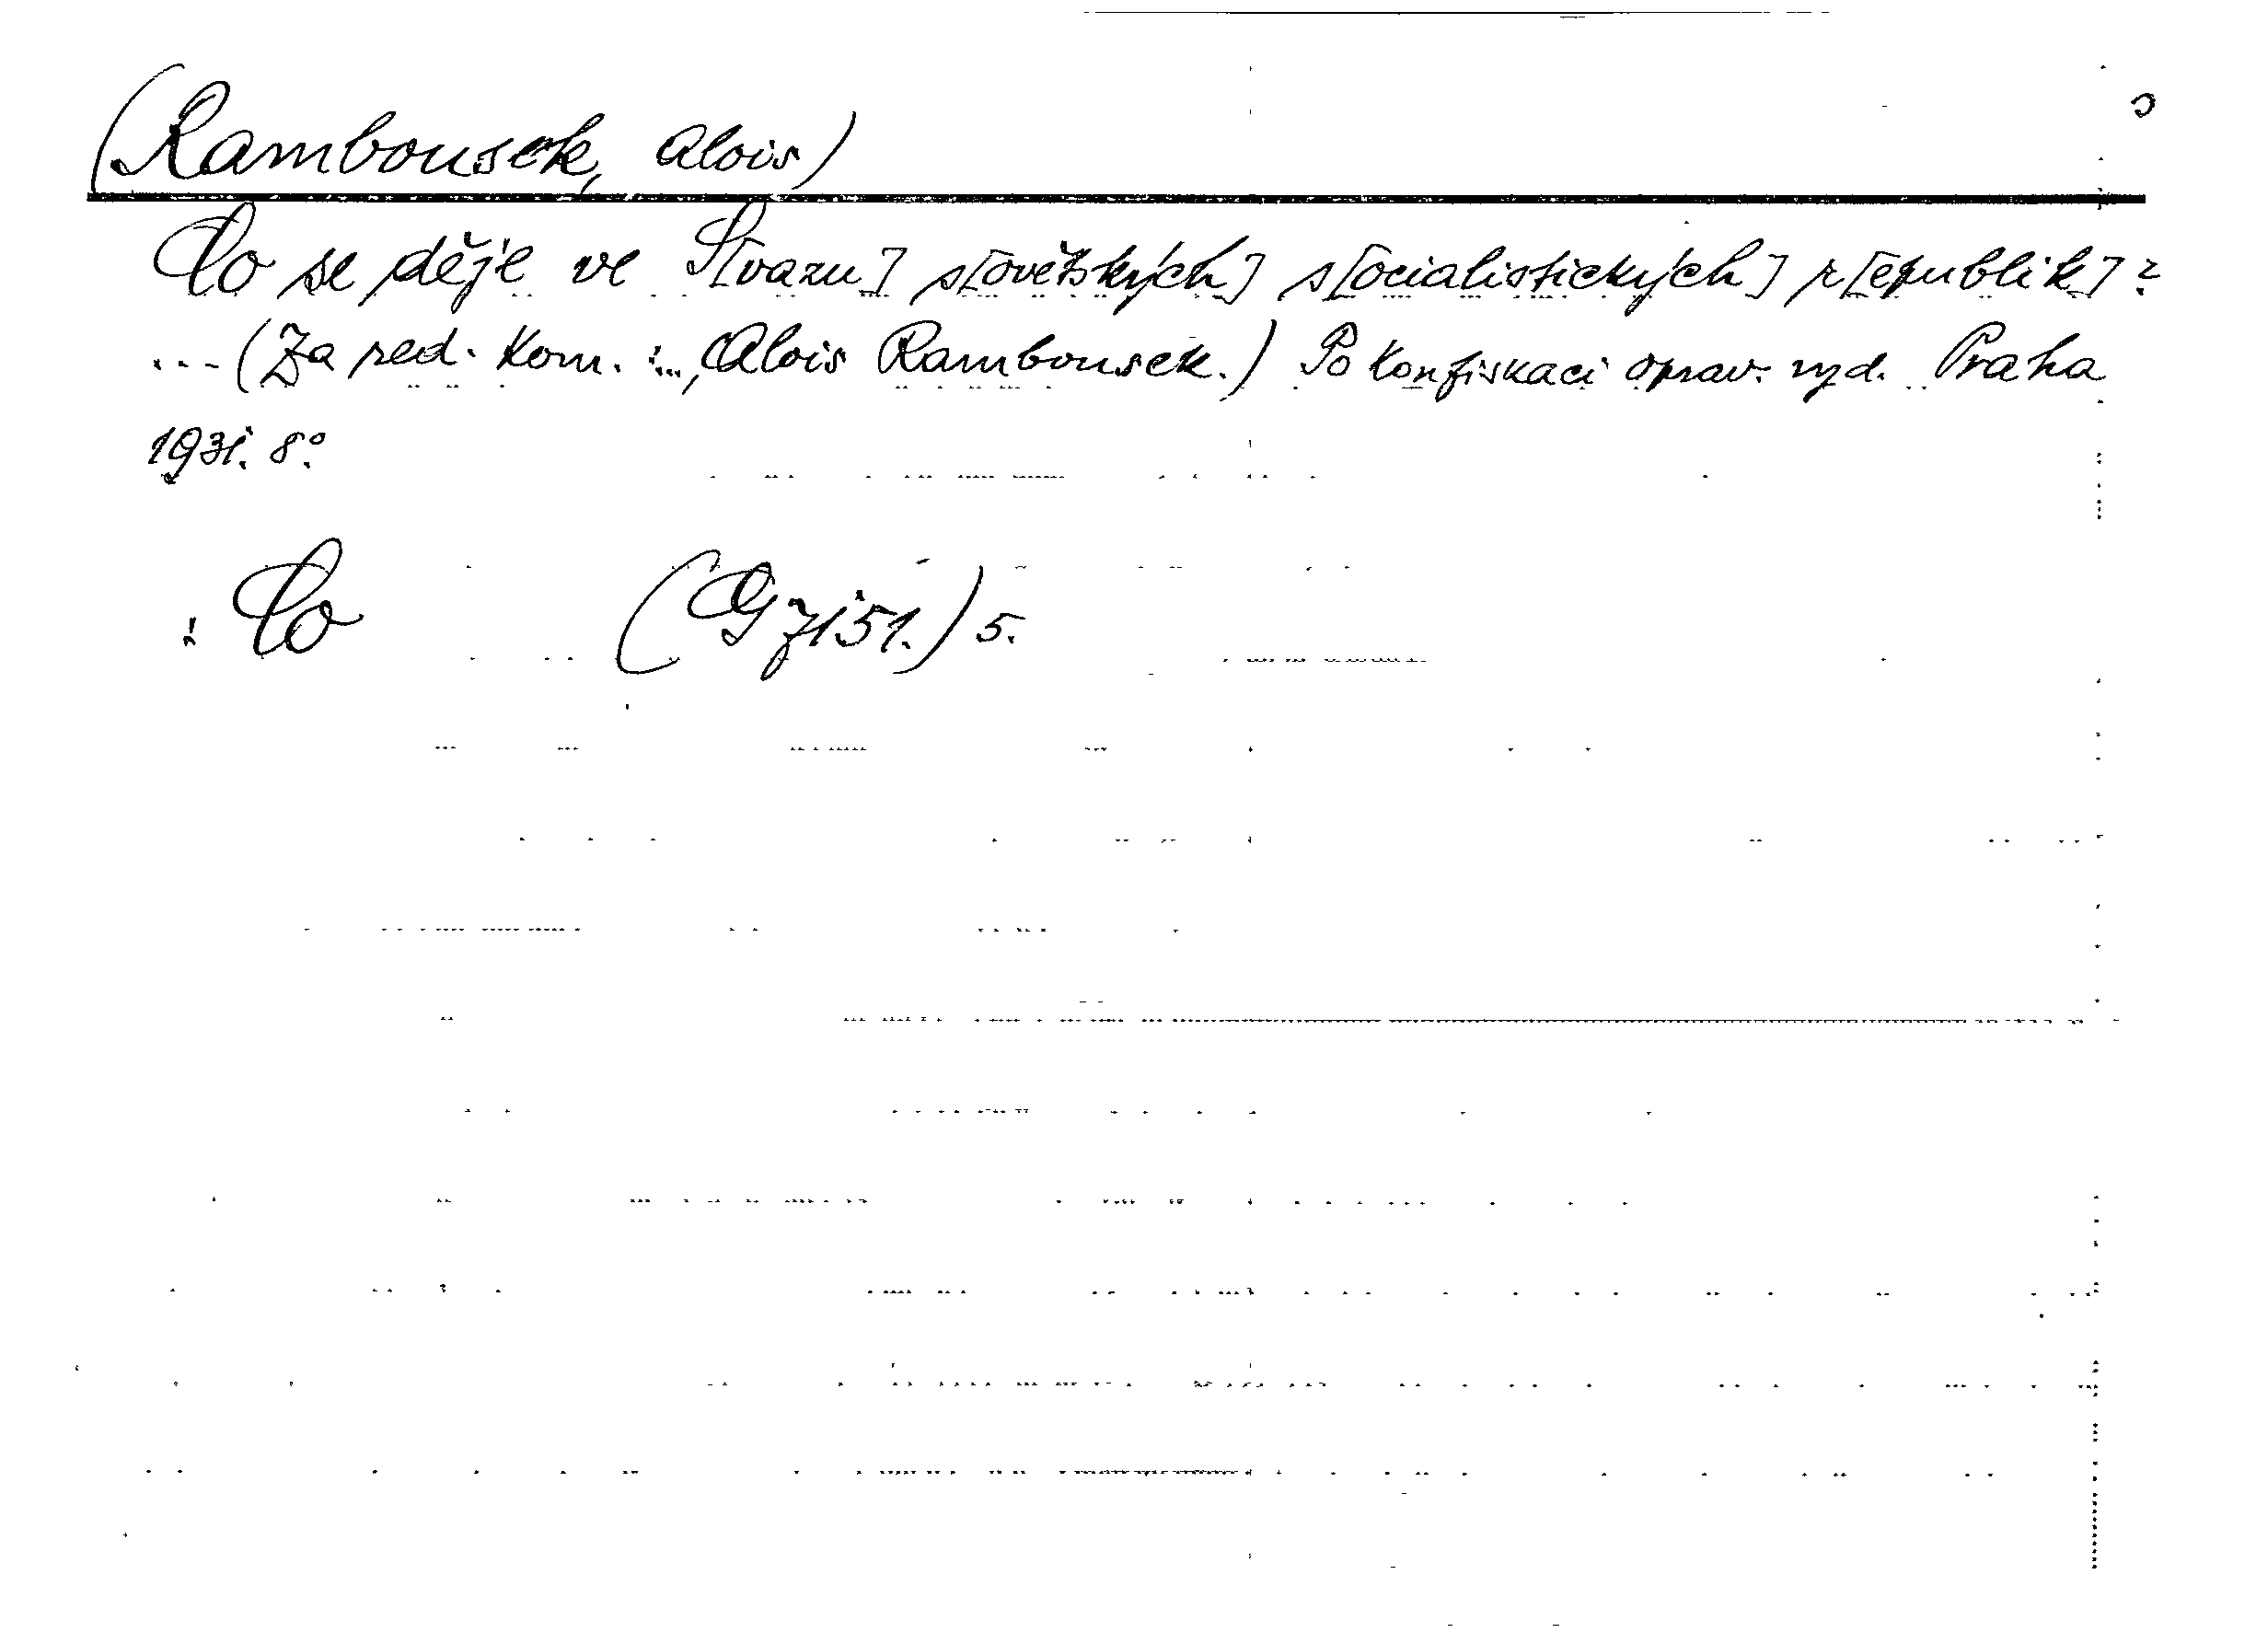 (Rambousek, Alois)
Co se děje ve S[vazu] s[ovětských] s[ocialistických] r[epublik]?
... (Za red. kom. : ..., Alois Rambousek.) Po konfiskaci oprav. vyd. Praha
1931. 8°.
: Co (G 7151.) 5.